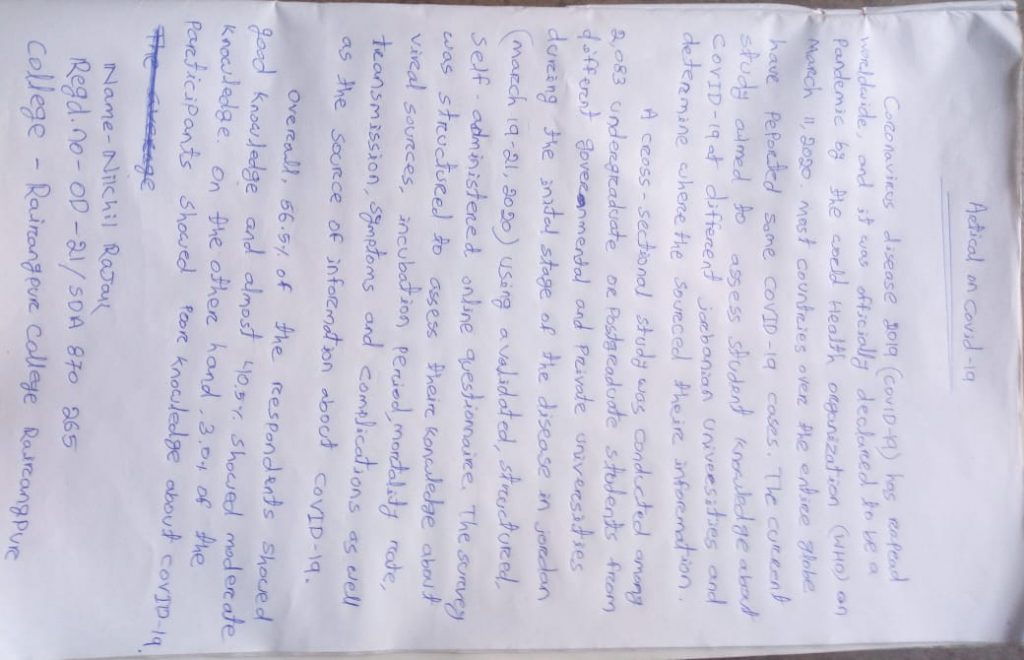 Aetical on Covid-19
Coronavirus disease 2019 (COVID-19) has repead
woreldwide, and it was officially declareed to be a
Pandemic by the world Health organization (WHO) on
March 11, 2020. most countries over the entire globe
have Peported some covid-19 cases. The current
study aimed to assess student knowledge about
COVID-19 at different joebanian univesities and
determine where the sourced theire information.
A creoss-sectional study was conducted among
2,083 undergraduate or Postgeaduate students from
different goverenmental and Private univeresities
dureing the inital stage of the disease in Joredan
(march 19-21, 2020) Using a validated, structured,
self-administered online questionnaire. The survey
was structured to assess theire konwledge about
vireal sources, incubation period, mordality rate,
treansmission, symptoms and complications as well
as the source of information about COVID-19.
overall, 56.5% of the respondents showed
good knowledge and almost 40.5% showed modereate
knowledge. On the othere hand, 3.0% of the
Parcticipants showed poor knowledge about COVID-19.
Name - Nichil Ratai
Regd.no - OD-21/SDA 870 265
College - Raireangpure College Raireangpure